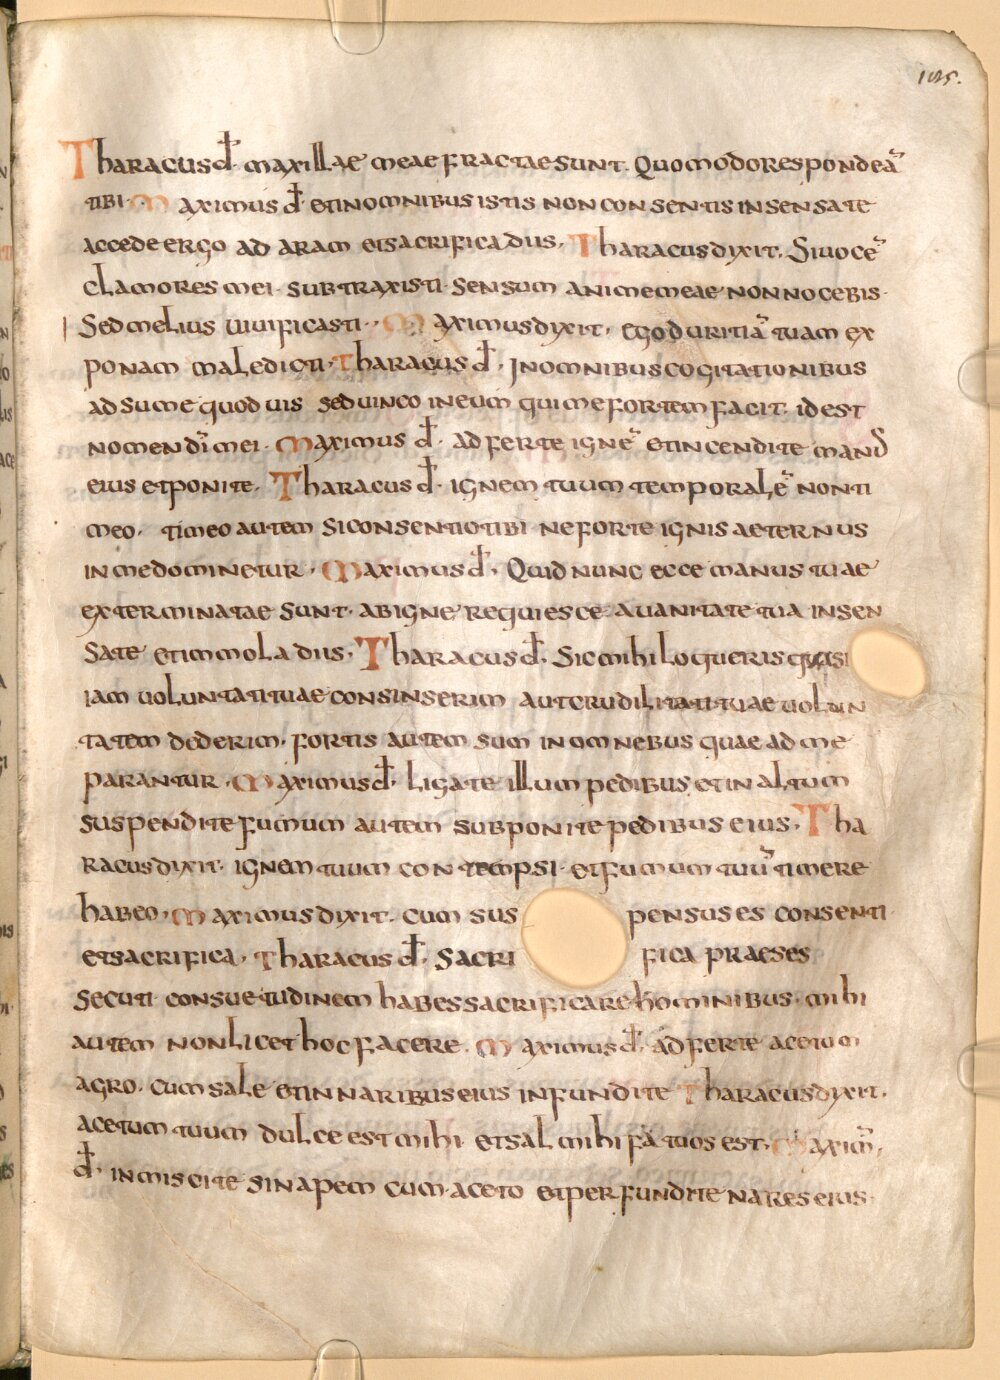 125.
Tharacus d̄. maxillae meae fractae sunt. Quomodo respondeā
tibi. Maximus d̄. et in omnibus istis non consentis insensate
accede ergo ad aram et sacrifica diis, Tharacus dixit. Si uocē
clamores mei subtraxisti. sensum anime meae non nocebis.
Sed melius uiuificasti. Maximus dixit, ego duritiā tuam ex
ponam maledicti. Tharacus d̄. In omnibus cogitationibus
adsume quod uis sed uinco in eum qui me fortem facit. id est
nomen dī mei. Maximus d̄. adferte ignē et incendite man
eius et ponite. Tharacus d̄. ignem tuum temporalē non ti
meo. timeo autem si consentio tibi ne forte ignis aeternus
in me dominetur. Maximus d̄. Quid nunc ecce manus tuae
exterminatae sunt. ab igne requiesce a uanitate tua insen
sate et immola diis. Tharacus d̄. Sic mihi loqueris quasi
iam uoluntati tuae consinserim aut crudilitati tuae uolun
tatem dederim. fortis autem sum in omnebus quae ad me
parantur. Maximus d̄. Ligate illum pedibus et in altum
suspendite fumum autem subponite pedibus eius. Tha
racus dixit. ignem tuum contempsi. et fumum tuū timere
habeo. Maximus dixit. cum suspensus es consenti
et sacrifica. Tharacus d̄. Sacrifica praeses
secuti consuetudinem habes sacrificare hominibus. mihi
autem non licet hoc facere. Maximus d̄. adferte acetum
agro. cum sale et in naribus eius infundite Tharacus dixit.
acetum tuum dulce est mihi. et sal mihi fatuos est. Maxim̄,
d̄. inmiscite sinapem cum aceto et perfundite nares eius.